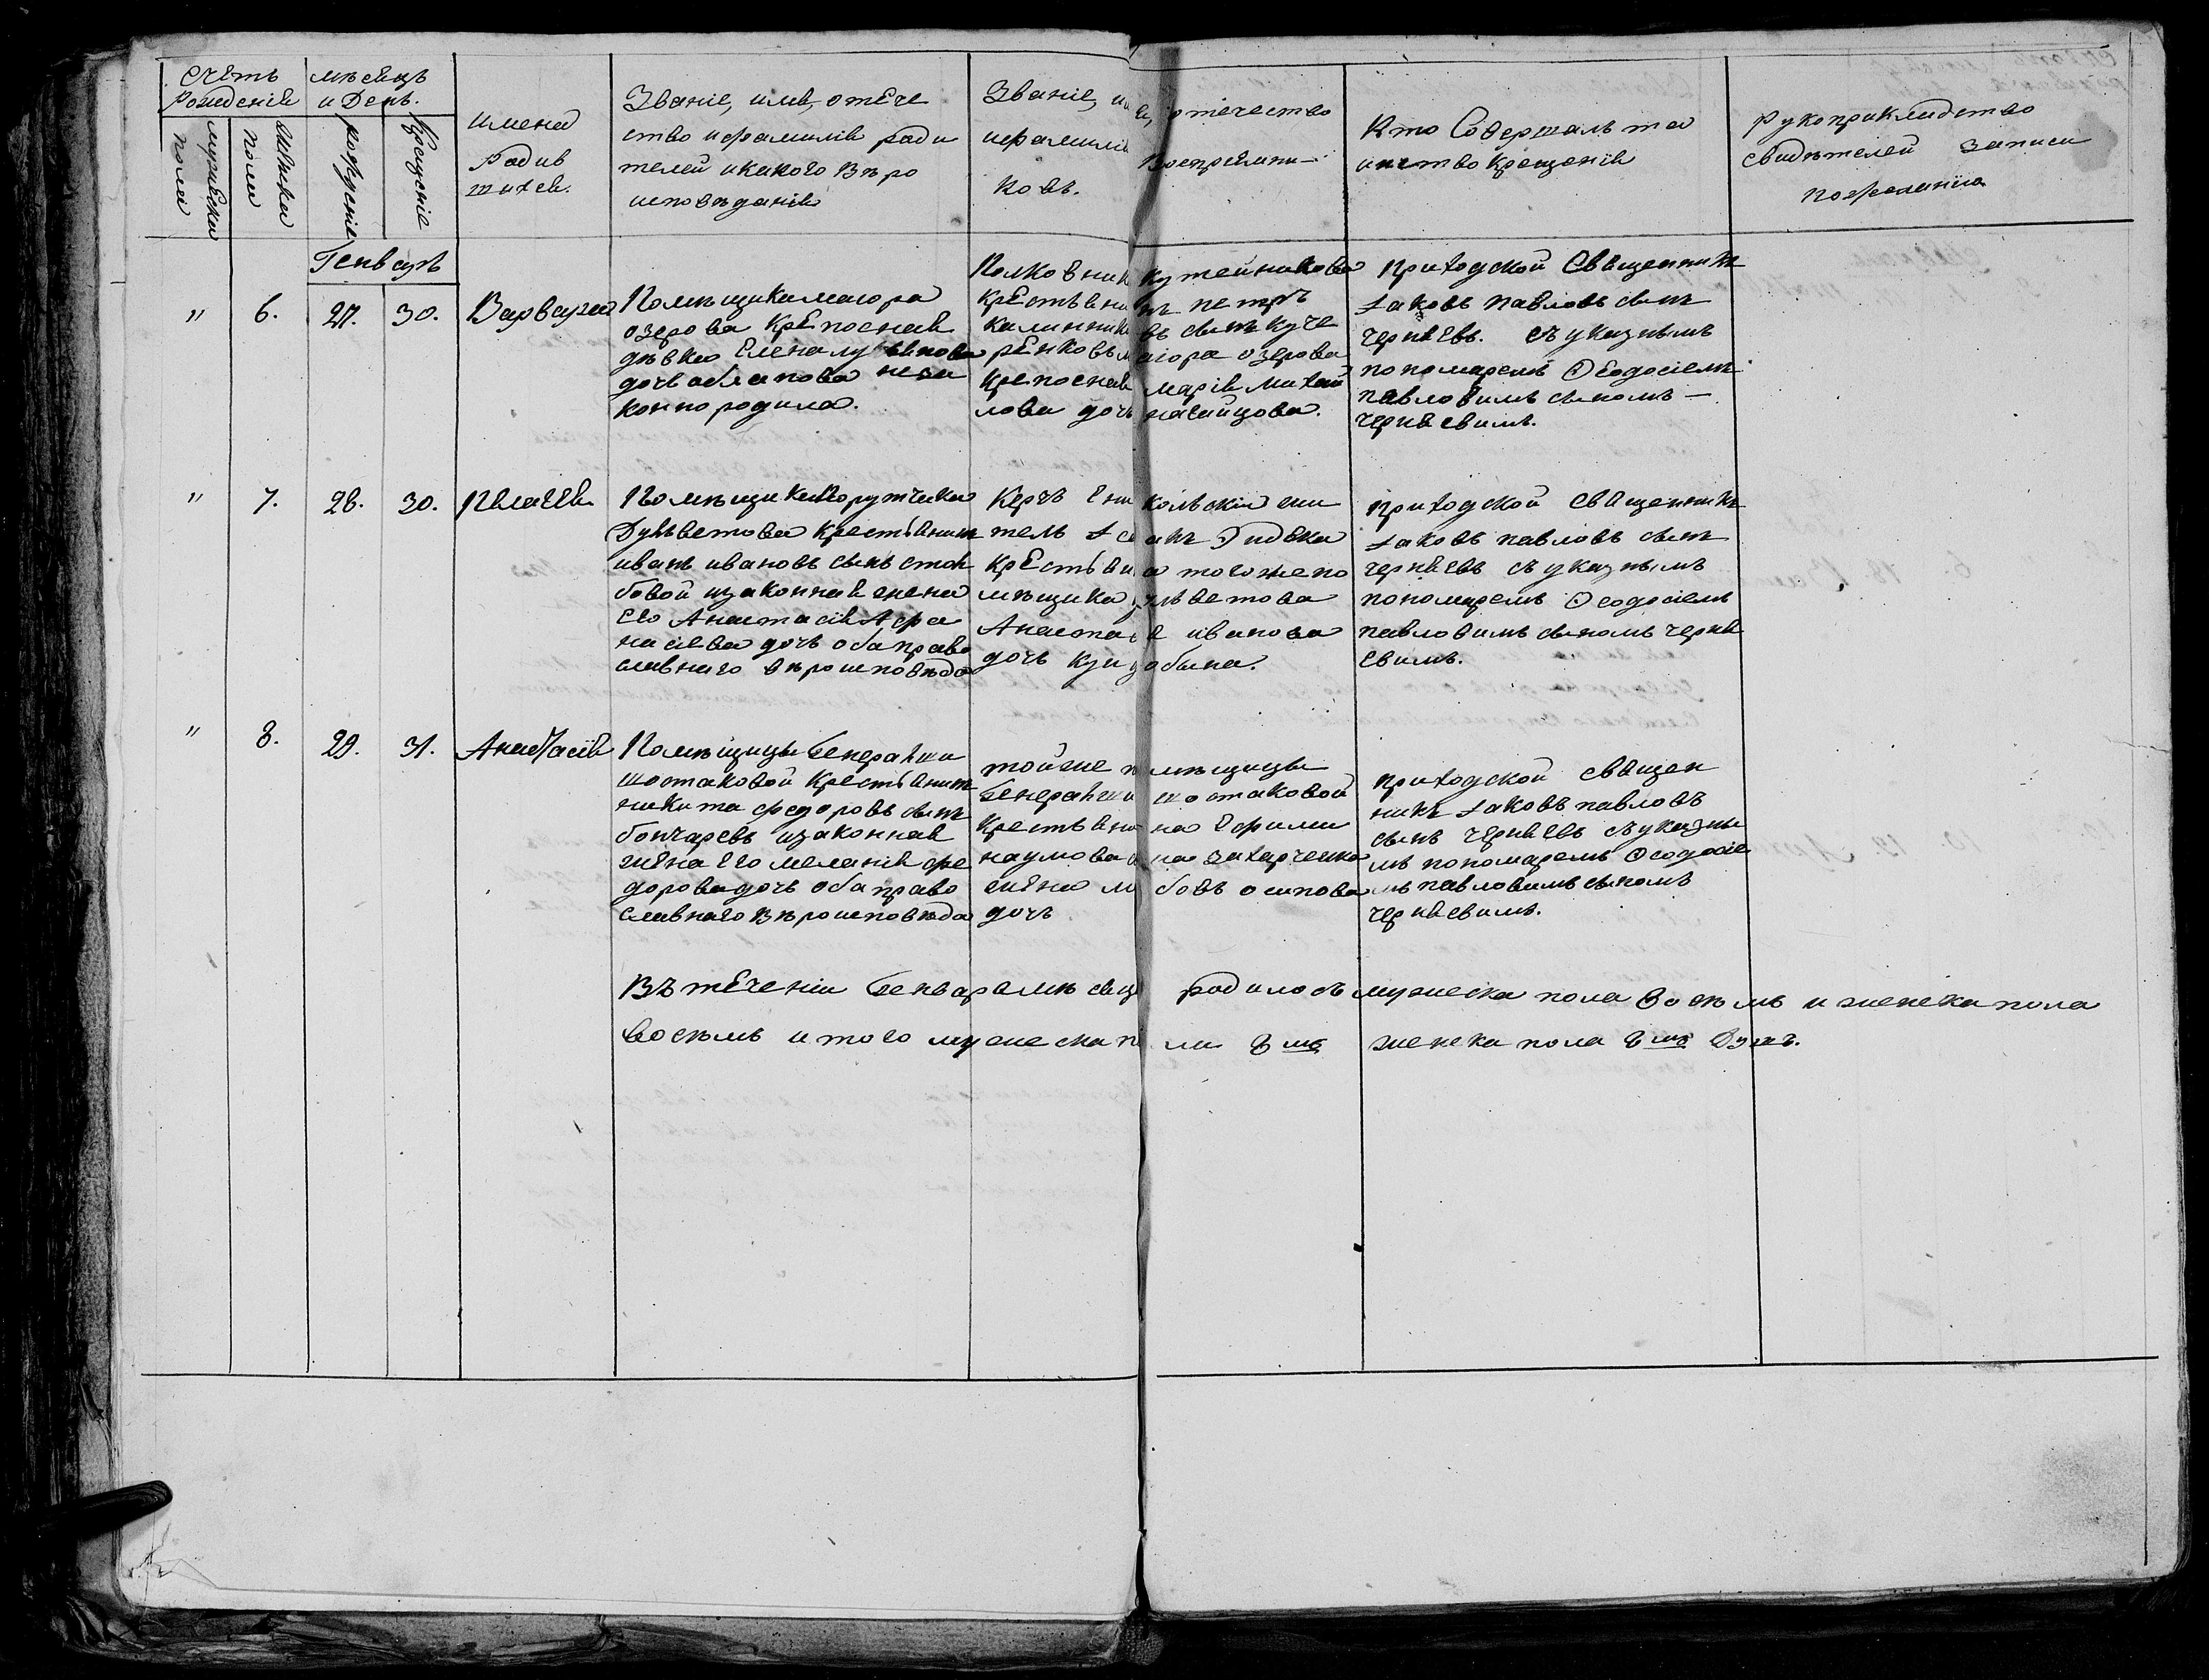 Счетъ рожденій
мѣсяцъ и день.
мужеска пола
женска пола
рожденіе
крещеніе
имена
родив
шихся.
Званіе, имя, отече
ство и фамилія роди
телей и какого вѣро
исповѣданія
Званіе, имя, отечество
и фамилія воспріемни-
ковъ.
Кто содержалъ та
инство крещенія
рукоприкладство
свидѣтелей записи
по желанію
Генварь
" 6. 27. 30. Варвара
Помѣщика маіора
озерова крепосная
дѣвка Елена
дочь незя
конно родила.
Полковника кутейникова
крестьянинъ петръ
калинниковъ сынъ куче
ренковъ маіора озерова
крепосная марія михай
лова дочь
приходской священникъ
Іаковъ павловъ сынъ
черняевъ. съ указнымъ
пономаремъ Ѳеодосіемъ
павловымъ сыномъ —
черняевымъ.
" 7. 28. 30. Пелагея
Помѣщика порутчика
крестьянинъ
иванъ ивановъ сынъ стол
бовой и законная жена
его Анастасія Афа
насіева дочь оба право
славнаго вѣроисповѣда
Керчъ ени кольскій жи
тель
крестьянка того же по
мѣщика
Анастасія иванова
дочь
приходской священникъ
Іаковъ павловъ сынъ
черняевъ съ указнымъ
пономаремъ Ѳеодосіемъ
павловымъ сыномъ черня
евымъ.
" 8. 29. 31. Анастасія
Помѣщицы Генеральши
шостаковой крестьянинъ
никита федоровъ сынъ
бончаревъ и законная
жена его меланія фе
дорова дочь оба право
славнаго вѣроисповѣда
той же помѣщицы
Генеральши шостаковой
крестьянина Ефима
наумова сына захарченка
жена любовь осипова
дочь
приходской священ
никъ Іаковъ павловъ
сынъ черняевъ съ указны
мъ пономаремъ Ѳеодосіе
мъ павловымъ сыномъ
черняевымъ.
Въ теченіи Генваря мѣсяца родилось мужеска пола восѣмь и женска пола
восѣмь итого мужеска пола 8мь женска пола 8мь душъ.